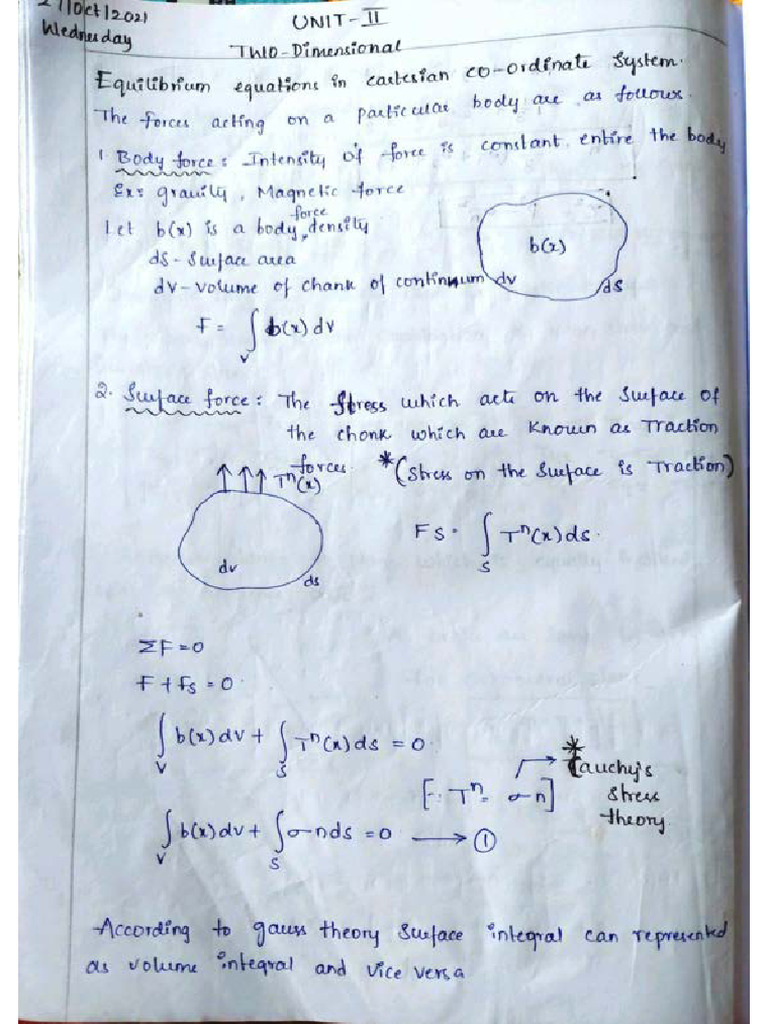 27/Oct/2021
Wednesday
UNIT-II
Two-Dimensional
Equilibrium equations in cartesian co-ordinate system.
The forces acting on a particular body are as follows.
1. Body force: Intensity of force is constant entire the body
Ex: gravity, Magnetic force
Let b(x) is a body force density
ds - surface area
dv - volume of chank of continuum
F = ∫_V b(x) dv
b(x)
dv
ds
2. Surface force: The stress which acts on the surface of
the chonk which are known as Traction
forces. *(stress on the surface is Traction)
Tⁿ(x)
dv
ds
Fs = ∫_S Tⁿ(x) ds.
ΣF = 0
F + Fs = 0
∫_V b(x) dv + ∫_S Tⁿ(x) ds = 0
[∵ Tⁿ = σn]
* Cauchy's
stress
theory.
∫_V b(x) dv + ∫_S σn ds = 0 → ①
According to gauss theory surface integral can represented
as volume integral and vice versa